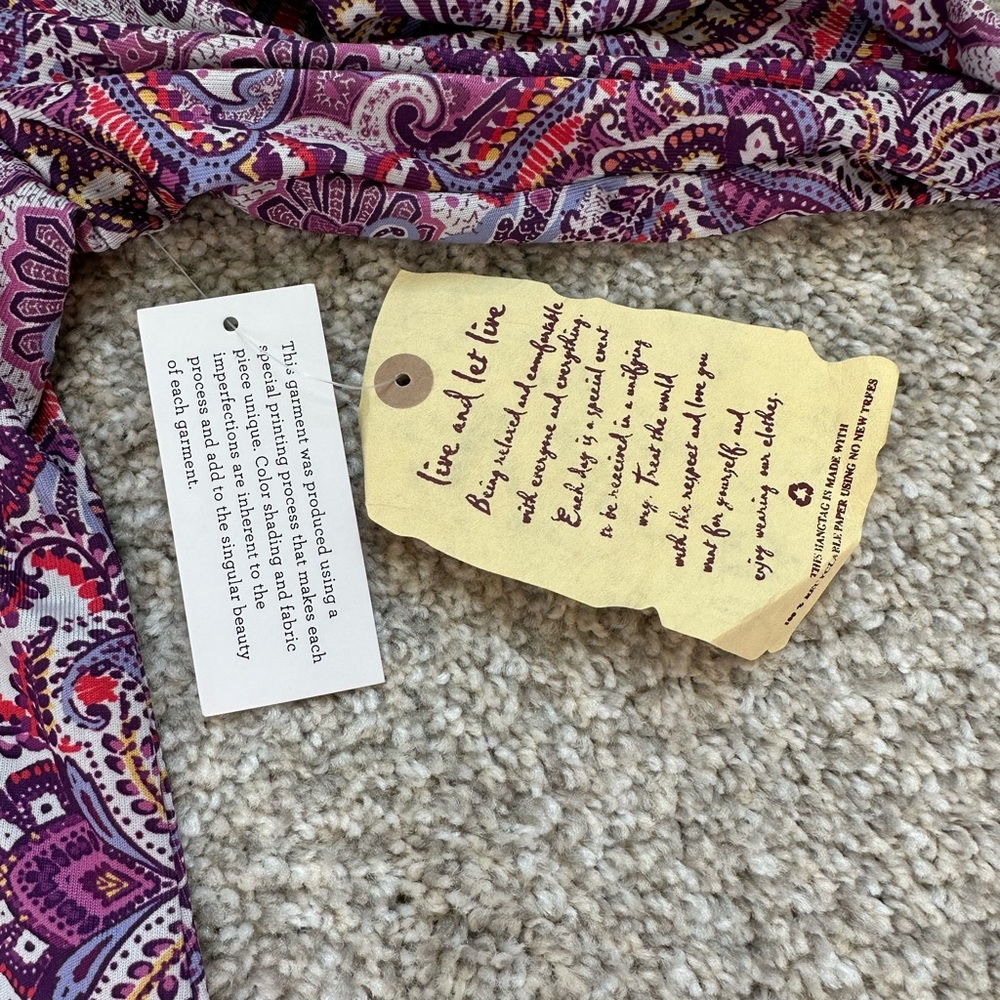 This garment was produced using a
special printing process that makes each
piece unique. Color shading and fabric
imperfections are inherent to the
process and add to the singular beauty
of each garment.
live and let live
Being relaxed and comfortable
with everyone and everything.
Each day is a special event
to be received in a unifying
way. Treat the world
with the respect and love you
want for yourself, and
enjoy wearing our clothes.
THIS HANGTAG IS MADE WITH
100% RECYCLABLE PAPER USING NO NEW TREES